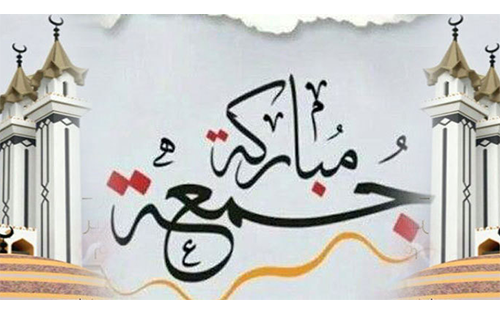 جُمعَة
مُباركة